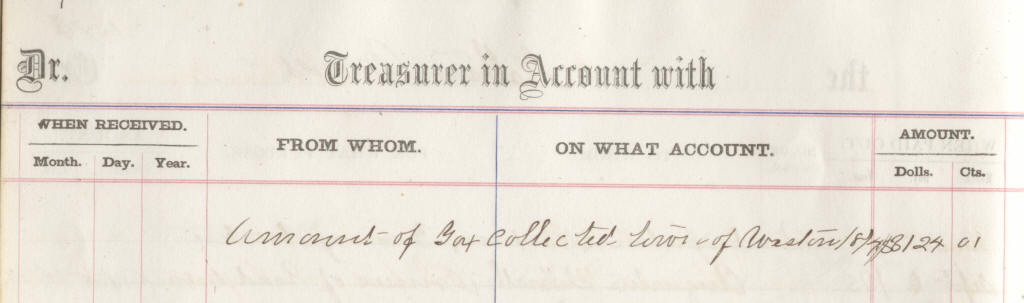 Dr. Treasurer in Account with
WHEN RECEIVED. FROM WHOM. ON WHAT ACCOUNT. AMOUNT.
Month. Day. Year. Dolls. Cts.
Amount of Tax collected town of Weston 124 01